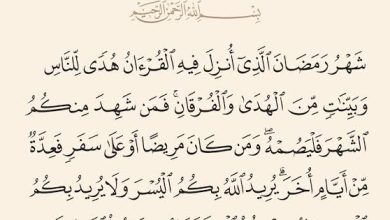 بِسْمِ اللَّهِ الرَّحْمَٰنِ الرَّحِيمِ
شَهْرُ رَمَضَانَ ٱلَّذِىٓ أُنزِلَ فِيهِ ٱلْقُرْءَانُ هُدًى لِّلنَّاسِ
وَبَيِّنَٰتٍ مِّنَ ٱلْهُدَىٰ وَٱلْفُرْقَانِ ۚ فَمَن شَهِدَ مِنكُمُ
ٱلشَّهْرَ فَلْيَصُمْهُ ۖ وَمَن كَانَ مَرِيضًا أَوْ عَلَىٰ سَفَرٍ فَعِدَّةٌ
مِّنْ أَيَّامٍ أُخَرَ ۗ يُرِيدُ ٱللَّهُ بِكُمُ ٱلْيُسْرَ وَلَا يُرِيدُ بِكُمُ